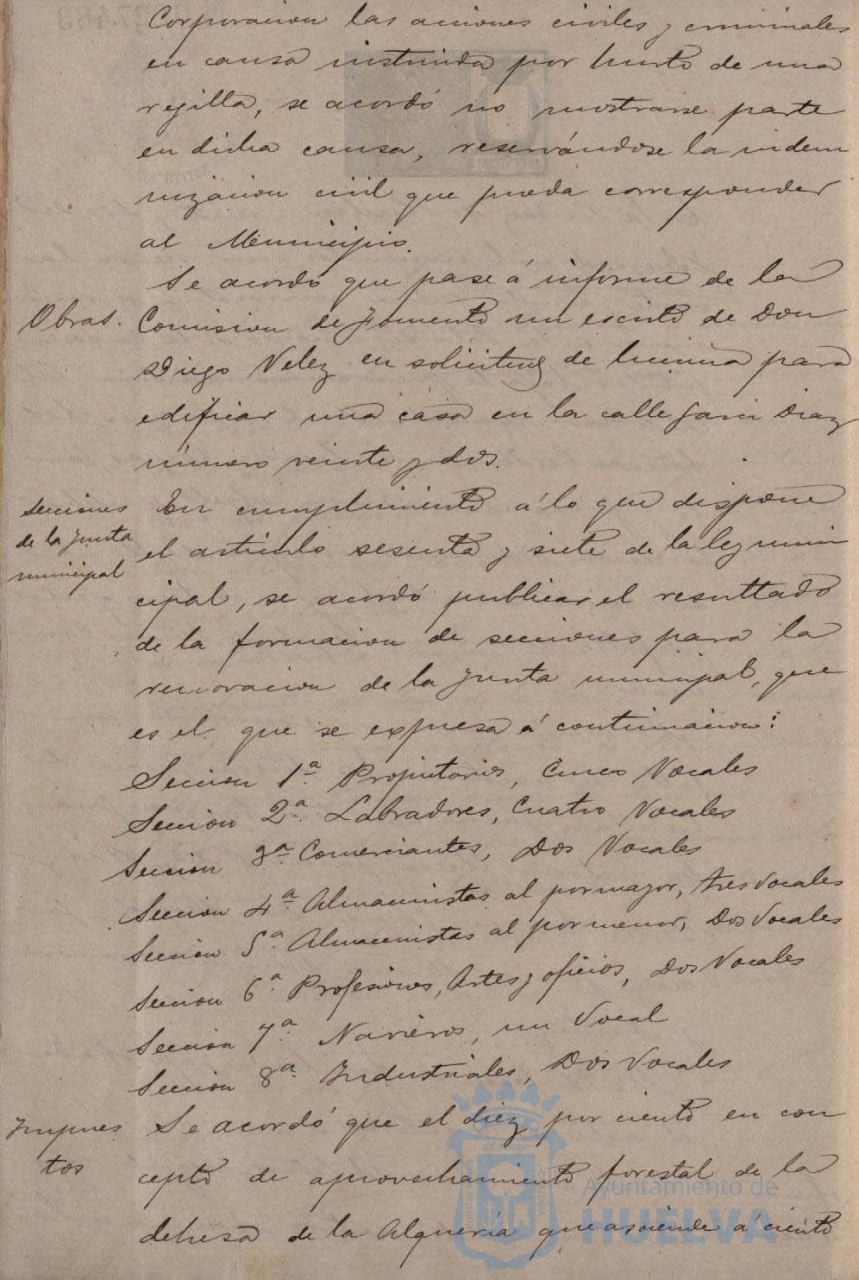 Corporacion las acciones civiles y criminales
en causa instruida por hurto de una
rejilla, se acordó no mostrarse parte
en dicha causa, reservándose la indem
nizacion civil que pueda corresponder
al Municipio.
Se acordó que pase á informe de la
Obras. Comision de fomento un escrito de Don
Diego Velez en solicitud de licencia para
edificar una casa en la calle Garci Diaz
número veinte y dos.
Secciones
de la Junta
municipal
En cumplimiento á lo que dispone
el articulo sesenta y siete de la ley muni
cipal, se acordó publicar el resultado
de la formacion de secciones para la
renovacion de la junta municipal, que
es el que se expresa á continuacion:
Seccion 1ª Propietarios, Cinco Vocales
Seccion 2ª Labradores, Cuatro Vocales
Seccion 3ª Comerciantes, Dos Vocales
Seccion 4ª Almacenistas al por mayor, tres vocales
Seccion 5ª Almacenistas al por menor, Dos Vocales
Seccion 6ª Profesiones, Artes y oficios, Dos Vocales
Seccion 7ª Navieros, un Vocal
Seccion 8ª Industriales, Dos Vocales
Impues
tos
Se acordó que el diez por ciento en con
cepto de aprovechamiento forestal de la
dehesa de la Alquería que asciende á ciento
Ayuntamiento de
HUELVA